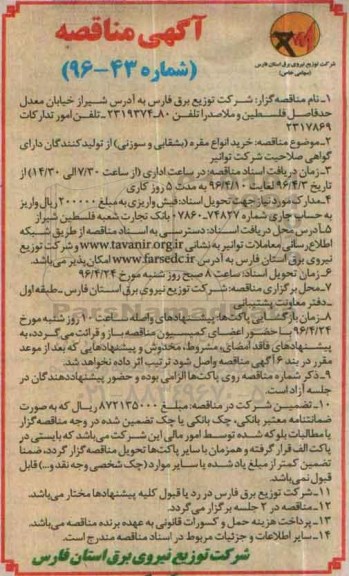 آگهی مناقصه
(شماره ۴۳-۹۶)
شرکت توزیع نیروی برق استان فارس
(سهامی خاص)
۱-نام مناقصه‌گزار: شرکت توزیع برق فارس به آدرس شیراز خیابان معدل
حدفاصل فلسطین و ملاصدرا تلفن ۸۰-۲۳۱۹۳۷۴-تلفن امور تدارکات
۲۳۱۷۸۶۹
۲-موضوع مناقصه: خرید انواع مقره (بشقابی و سوزنی) از تولیدکنندگان دارای
گواهی صلاحیت شرکت توانیر
۳-زمان دریافت اسناد مناقصه: در ساعت اداری (از ساعت ۷/۳۰ الی ۱۴/۳۰) از
تاریخ ۹۶/۴/۳ لغایت ۹۶/۴/۱۰ به مدت ۵ روز کاری
۴-مدارک مورد نیاز جهت تحویل اسناد: فیش واریزی به مبلغ ۲۰۰۰۰۰ ریال واریز
به حساب جاری شماره ۰۷۸۶۰-۷۴۸۲۷ بانک تجارت شعبه فلسطین شیراز
۵-آدرس محل دریافت اسناد: دسترسی به اسناد مناقصه از طریق شبکه
اطلاع رسانی معاملات توانیر به نشانی www.tavanir.org.ir و شرکت توزیع
نیروی برق استان فارس به آدرس www.farsedc.ir امکان پذیر می‌باشد.
۶-زمان تحویل اسناد: ساعت ۸ صبح روز شنبه مورخ ۹۶/۴/۲۴
۷-محل برگزاری مناقصه: شرکت توزیع نیروی برق استان فارس - طبقه اول
-دفتر معاونت پشتیبانی
۸-زمان بازگشایی پاکت‌ها: پیشنهادهای واصله ساعت ۱۰ روز شنبه مورخ
۹۶/۴/۲۴ با حضور اعضای کمیسیون مناقصه باز و قرائت می‌گردد، به
پیشنهادهای فاقد امضای، مشروط، مخدوش و پیشنهادهایی که بعد از موعد
مقرر در بند ۶ آگهی مناقصه واصل شود ترتیب اثر داده نخواهد شد.
۹-ذکر شماره مناقصه روی پاکت‌ها الزامی بوده و حضور پیشنهاددهندگان در
جلسه آزاد است.
۱۰-تضمین شرکت در مناقصه: مبلغ ۸۷۲۱۳۵۰۰۰ ریال که به صورت
ضمانتنامه معتبر بانکی، چک بانکی یا چک تضمین شده در وجه مناقصه‌گزار
یا مطالبات بلوکه شده توسط امور مالی این شرکت می‌باشد که بایستی در
پاکت الف قرار گرفته و همزمان با سایر پاکت‌ها تحویل مناقصه گزار گردد، ضمنا
تضمین کمتر از مبلغ یاد شده یا سایر موارد (چک شخصی وجه نقد و...) قابل
قبول نمی‌باشد.
۱۱-شرکت توزیع برق فارس در رد یا قبول کلیه پیشنهادها مختار می‌باشد.
۱۲-مناقصه در ۲ جلسه برگزار می‌گردد.
۱۳-پرداخت هزینه حمل و کسورات قانونی به عهده برنده مناقصه می‌باشد.
۱۴-سایر اطلاعات و جزئیات مربوط در اسناد مناقصه مندرج است.
شرکت توزیع نیروی برق استان فارس